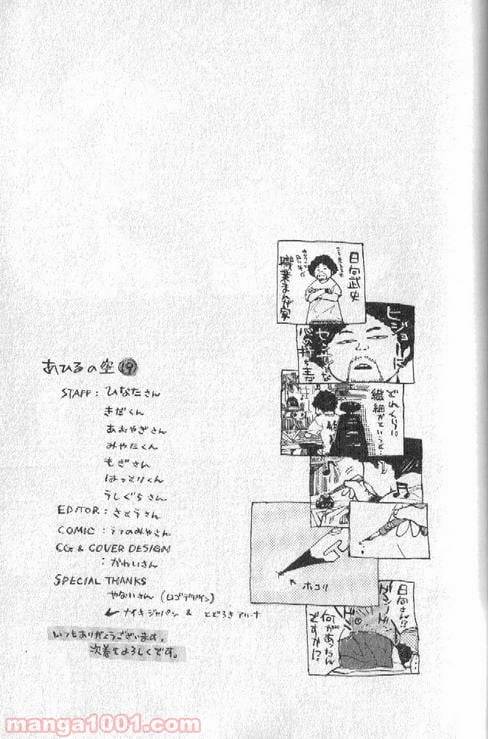 あひるの空 19
STAFF: ひなたさん
きだくん
あおやぎさん
みやたくん
もぎさん
はっとりくん
うしぐちさん
EDITOR: さとうさん
COMIC: うつのみやさん
CG & COVER DESIGN
: かわいさん
SPECIAL THANKS
やないさん (ロゴデザイン)
ナイキジャパン & とどろきアリーナ
いつもありがとうございます。
次巻もよろしくです。
日向武史
職業まんが家
ヒジョーに
センサイな
心の持ち主な
どれくらい
繊細かというと…
ホコリ
日向さん!?
何があったん
ですか!?
manga1001.com